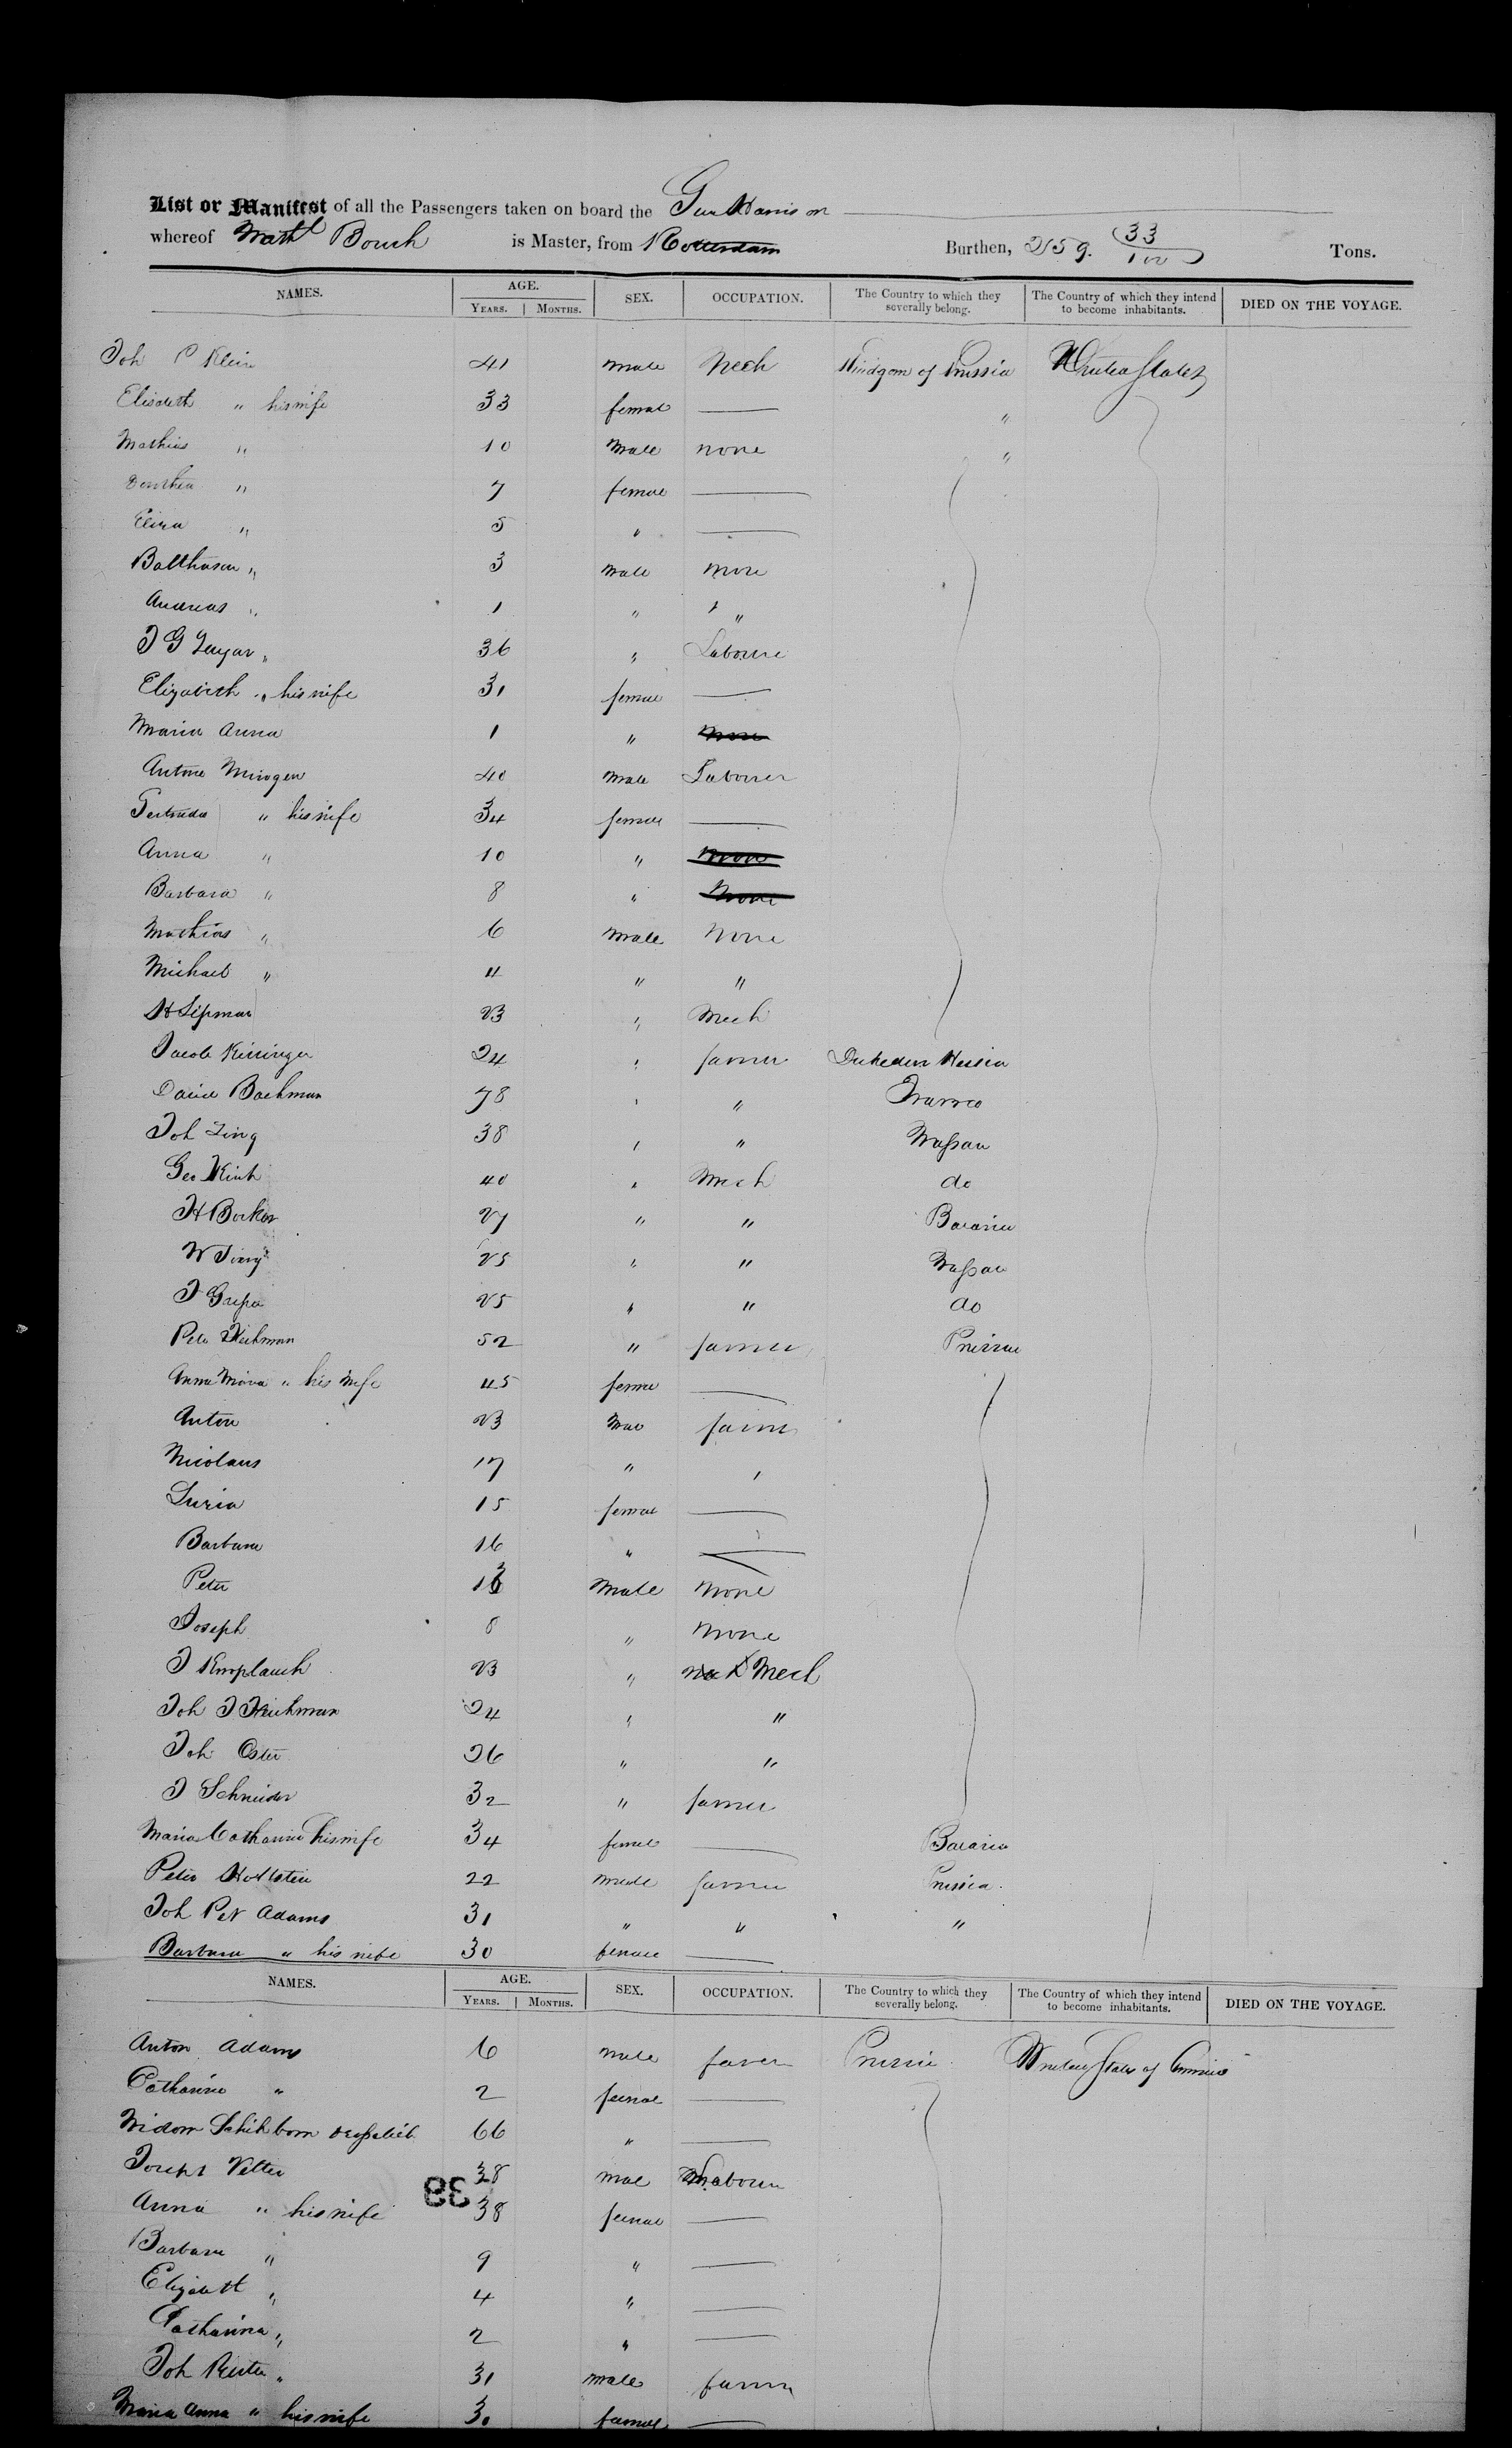 List or Manifest of all the Passengers taken on board the Gen Harrison
whereof Math Bouch is Master, from Rotterdam Burthen, 259. 33/100 Tons.
NAMES. AGE. SEX. OCCUPATION. The Country to which they severally belong. The Country of which they intend to become inhabitants. DIED ON THE VOYAGE.
YEARS. MONTHS.
Joh P Klein 41 Male Mech Kindgom of Prussia United States
Elisabeth " his wife 33 femal "
Mathias " 10 Male none "
Dorothea " 7 female
Eliza " 5 "
Balthasar " 3 Male none
Andreas " 1 " "
J G 36 " Laboure
Elizabeth " his wife 31 female
Maria Anna 1 " none
Antone 40 Male Labourer
Gertrudes " his wife 34 female
Anna " 10 " none
Barbara " 8 " none
Mathias " 6 Male None
Michael " 4 " "
H Lipman 23 " Mech
Jacob Kissinger 24 " farmer Dukedum Hessia
David Bachman 78 " " France
Joh Zing 38 " " Nassau
Geo 40 " Mech do
H Becker 27 " " Bavaria
W 25 " " Nassau
J 25 " " do
Peter 52 " farmer Prussia
Anna Maria " his wife 45 femal
Anton 23 Mal farmer
Nicolaus 17 " "
15 female
Barbara 16 "
Peter 13 Male None
Joseph 8 " None
J Knoplauch 23 " Mech
Joh J 24 " "
Joh Oster 26 " "
J Schneider 32 " farmer
Maria Catharine his wife 34 femel Bavaria
Peter Hollstein 22 Male farmer Prussia.
Joh Pet Adams 31 " " "
Barbara " his wife 30 female
NAMES. AGE. SEX. OCCUPATION. The Country to which they severally belong. The Country of which they intend to become inhabitants. DIED ON THE VOYAGE.
YEARS. MONTHS.
Anton Adams 6 Male farmer Prussia United States of America
Catharine " 2 femal
Widow 66 "
Joseph Vetter 38 Mal Labourer
38
Anna " his wife 38 femal
Barbara " 9 "
Elizabeth " 4 "
Catharina " 2 "
Joh Reuter " 31 Male farmer
Maria Anna " his wife 30 female